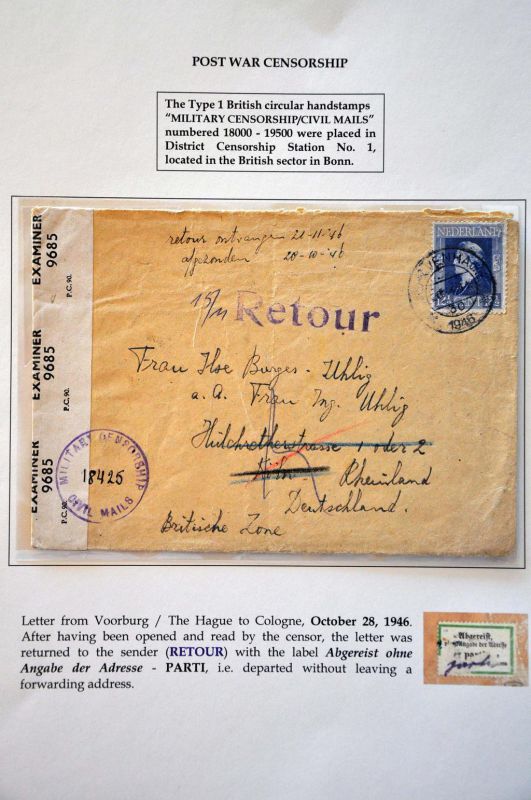 POST WAR CENSORSHIP
The Type 1 British circular handstamps
"MILITARY CENSORSHIP/CIVIL MAILS"
numbered 18000 - 19500 were placed in
District Censorship Station No. 1,
located in the British sector in Bonn.
EXAMINER 9685
P.C. 90.
EXAMINER 9685
P.C. 90.
EXAMINER 9685
P.C. 90.
retour ontvangen 21-11-46
afgezonden 28-10-46
NEDERLAND
1946
15/11
Retour
Frau Ilse Burges-Uhlig
a.A. Frau Ing. Uhlig
Hülchratherstrasse 1 oder 2
Köln Rheinland
Deutschland.
Britische Zone
MILITARY CENSORSHIP
18425
CIVIL MAILS
Letter from Voorburg / The Hague to Cologne, October 28, 1946.
After having been opened and read by the censor, the letter was
returned to the sender (RETOUR) with the label Abgereist ohne
Angabe der Adresse - PARTI, i.e. departed without leaving a
forwarding address.
Abgereist,
Angabe der Adresse
parti